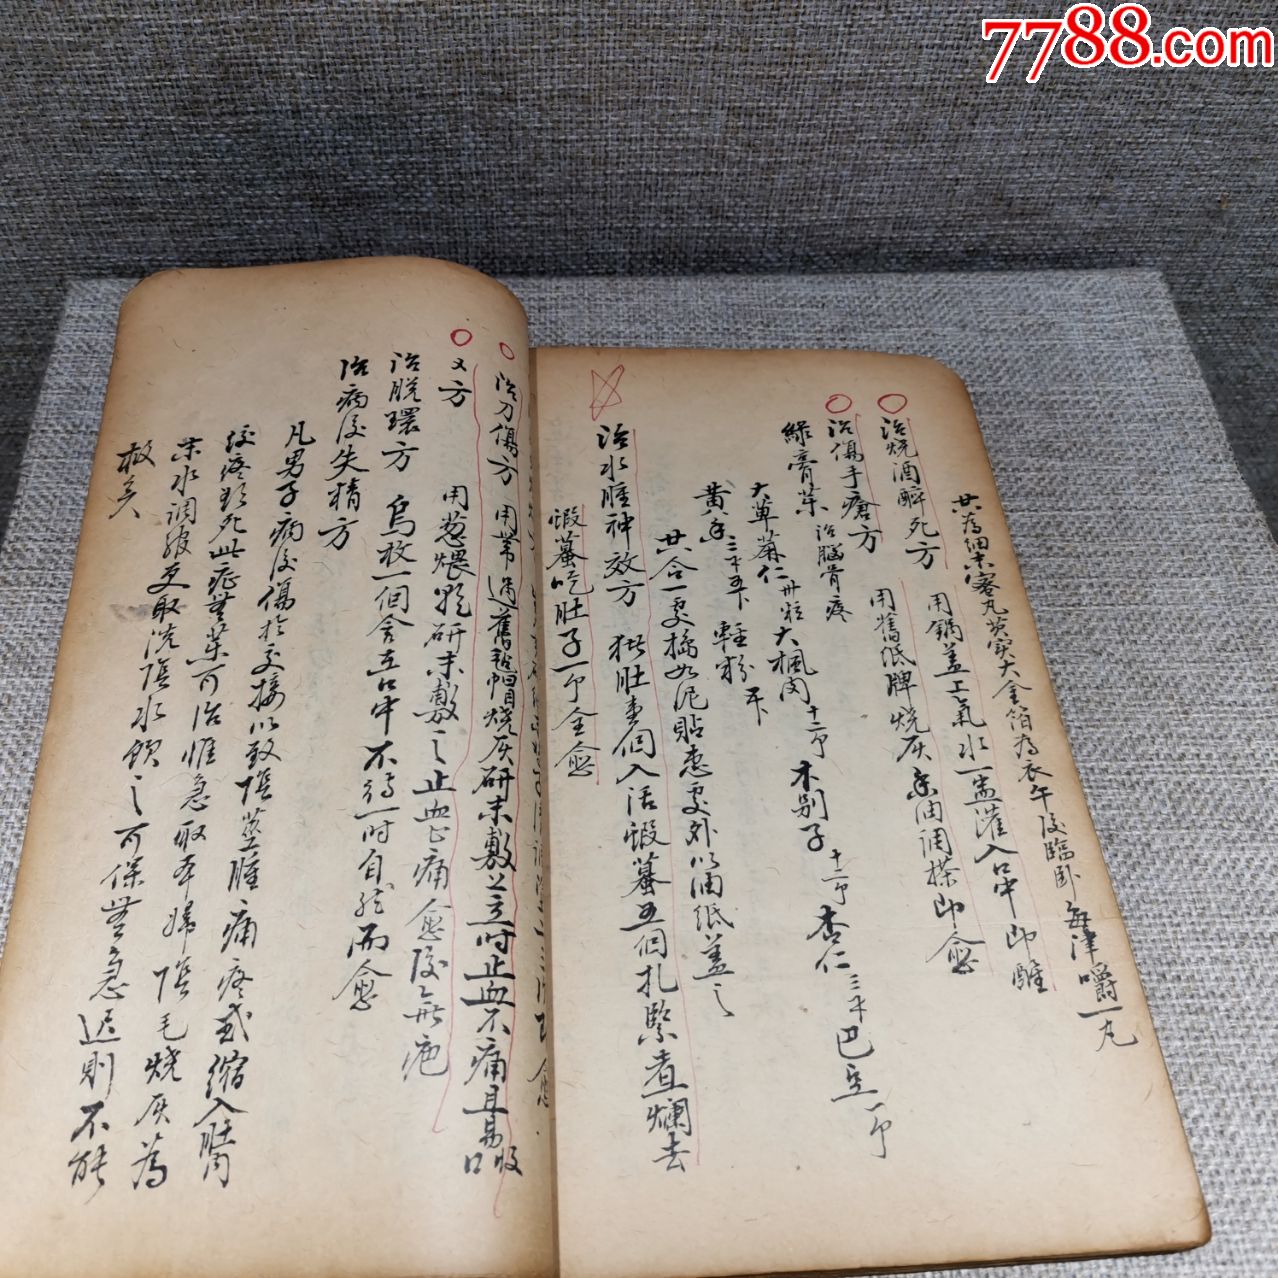 7788.com
共為細末蜜丸芡實大金箔為衣午後臨卧每津嚼一丸
治烧酒醉死方 用鍋盖上氣水一盅灌入口中即醒
治傷手瘡方 用舊纸牌烧灰香油调搽即愈
綠膏药 治腦骨疼
大草麻仁卅粒 大楓肉十二个 木别子十二个 杏仁 巴豆一个
黄 輕粉
共合一處搗如泥貼患處外以油纸盖之
治水腫神效方 猪肚壹個入活蝦蟇五個扎緊煮爛去
蝦蟇吃肚子一个全愈
治刀傷方 用 舊毡帽烧灰研末敷之立时止血不痛且易收口
又方 用葱煨 研末敷之止血止痛愈後無疤
治脱環方 烏枚一個含在口中不待一时自然而愈
治病後失精方
凡男子病後傷於交接以致陰莖腫痛疼或缩入肚内
绞疼欲死此症無药可治惟急取本婦陰毛烧灰為
末水调服更取洗陰水飲之可保無急迟則不能
救矣